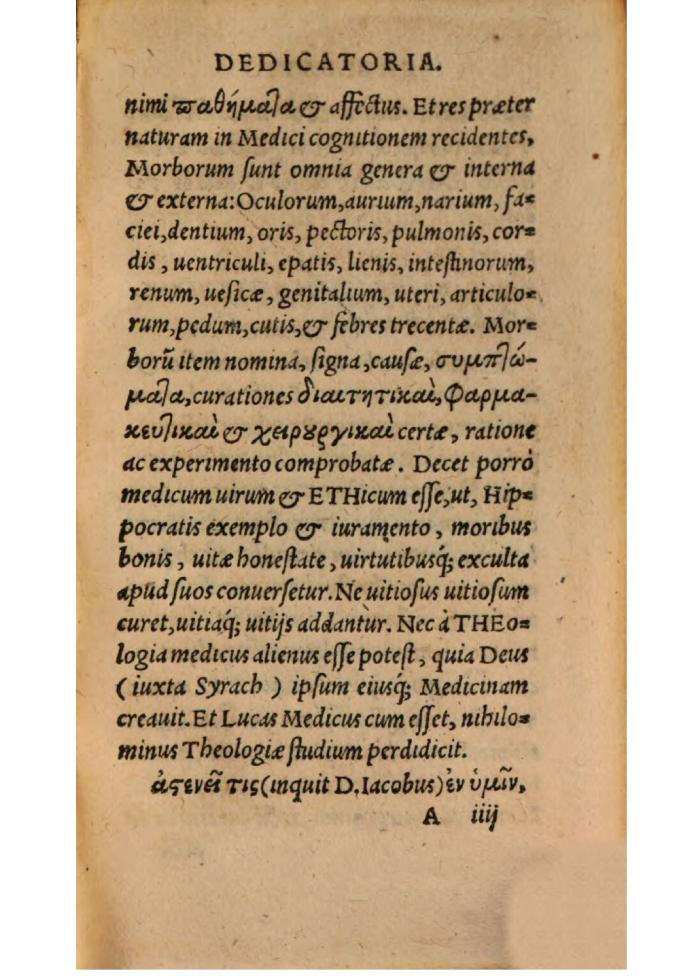 DEDICATORIA.
nimi παθήματα & affectus. Et res præter
naturam in Medici cognitionem recidentes,
Morborum ſunt omnia genera & interna
& externa: Oculorum, aurium, narium, fa=
ciei, dentium, oris, pectoris, pulmonis, cor=
dis, uentriculi, epatis, lienis, inteſtinorum,
renum, ueſicæ, genitalium, uteri, articulo=
rum, pedum, cutis, & febres trecentæ. Mor=
borũ item nomina, ſigna, cauſæ, συμπτώ-
ματα, curationes διαιτητικαὶ, φαρμα-
κευτικαὶ & χειρȣργικαὶ certæ, ratione
ac experimento comprobatæ. Decet porrò
medicum uirum & ETHicum eſſe, ut, Hip=
pocratis exemplo & iuramento, moribus
bonis, uitæ honeſtate, uirtutibusq́; exculta
apud ſuos conuerſetur. Ne uitioſus uitioſum
curet, uitiaq́; uitijs addantur. Nec à THEo=
logia medicus alienus eſſe poteſt, quia Deus
(iuxta Syrach) ipſum eiusq́; Medicinam
creauit. Et Lucas Medicus cum eſſet, nihilo=
minus Theologiæ ſtudium perdidicit.
ἀϛενεῖ τις (inquit D. Iacobus) ἐν ὑμῖν,
A iiij